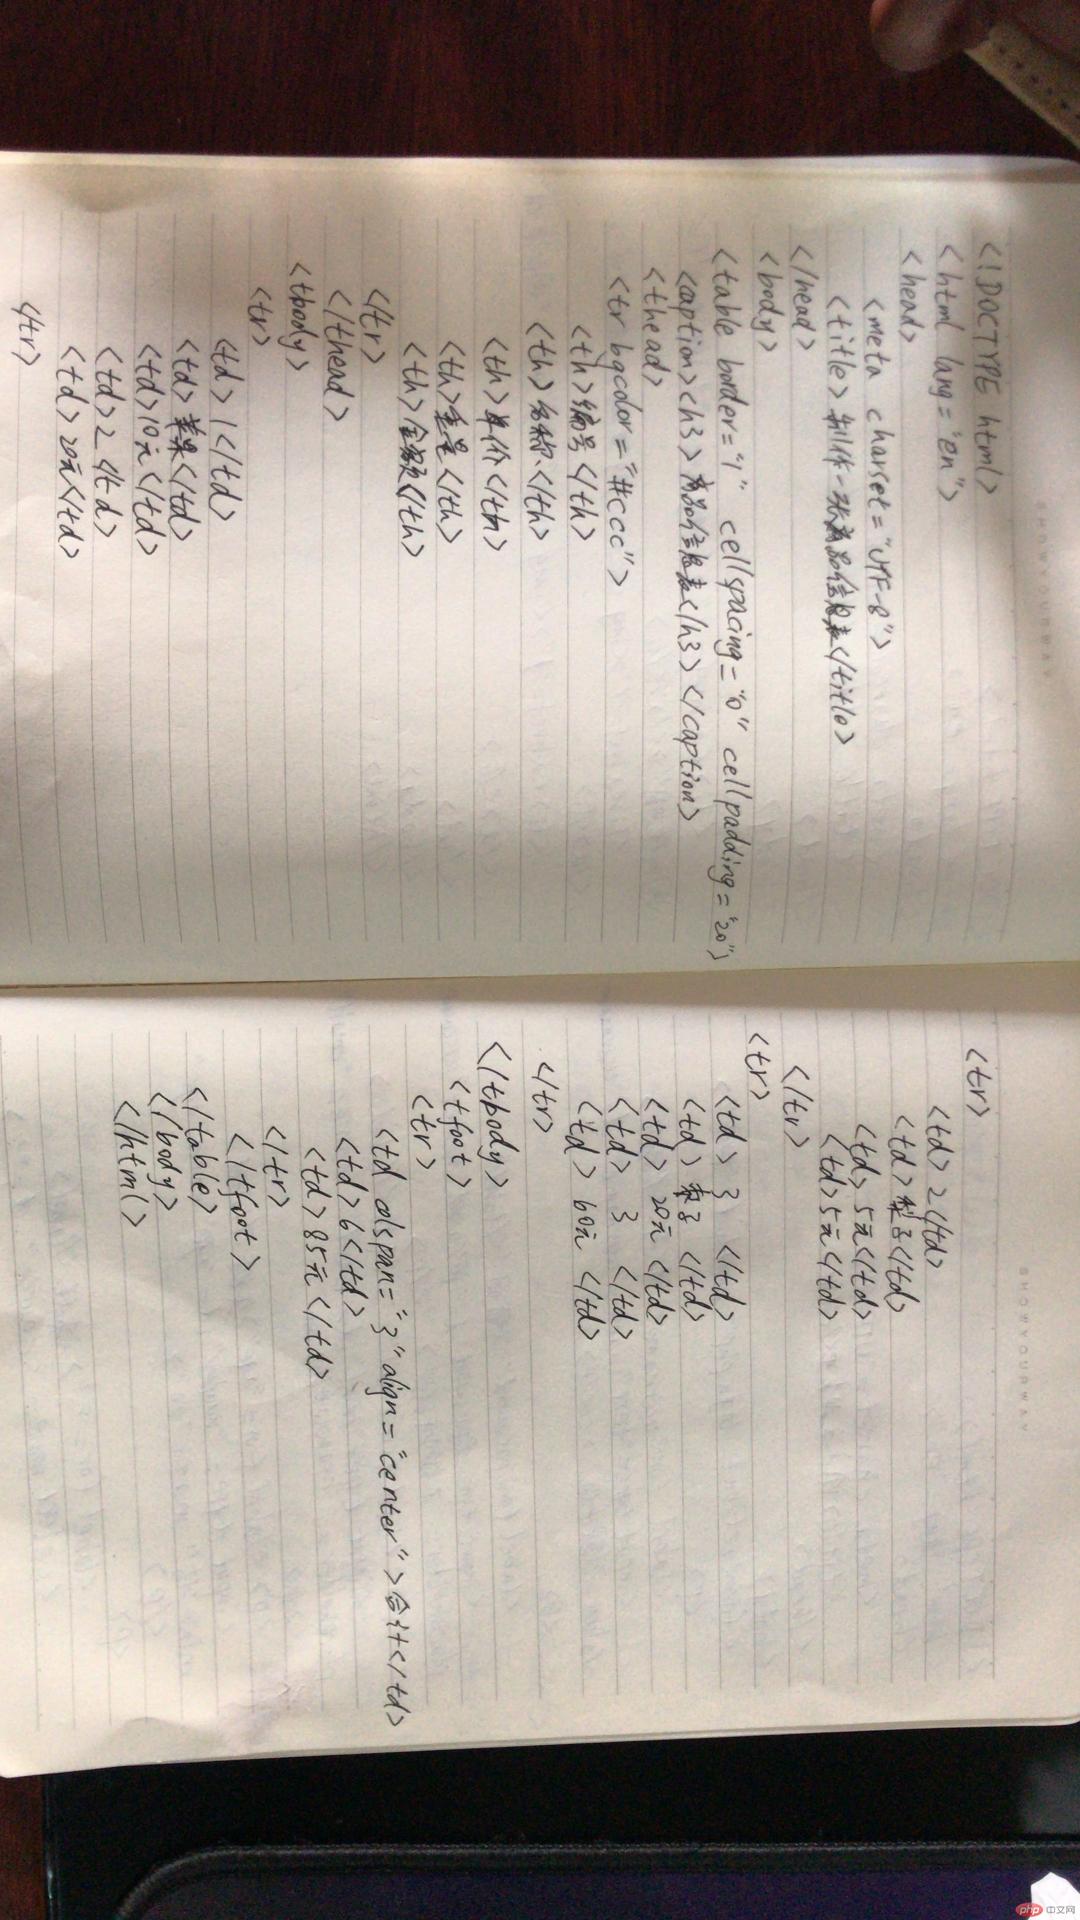 SHOWYOURWAY
<!DOCTYPE html>
<html lang="en">
<head>
<meta charset="UTF-8">
<title>制作一张商品信息表</title>
</head>
<body>
<table border="1" cellspacing="0" cellpadding="20">
<caption><h3>商品信息表</h3></caption>
<thead>
<tr bgcolor="#ccc">
<th>编号</th>
<th>名称</th>
<th>单价</th>
<th>重量</th>
<th>金额</th>
</tr>
</thead>
<tbody>
<tr>
<td>1</td>
<td>苹果</td>
<td>10元</td>
<td>2</td>
<td>20元</td>
</tr>
SHOWYOURWAY
<tr>
<td>2</td>
<td>梨子</td>
<td>5元</td>
<td>5元</td>
</tr>
<tr>
<td>3</td>
<td></td>
<td>20元</td>
<td>3</td>
<td>60元</td>
</tr>
</tbody>
<tfoot>
<tr>
<td colspan="3" align="center">合计</td>
<td>6</td>
<td>85元</td>
</tr>
</tfoot>
</table>
</body>
</html>
php 中文网